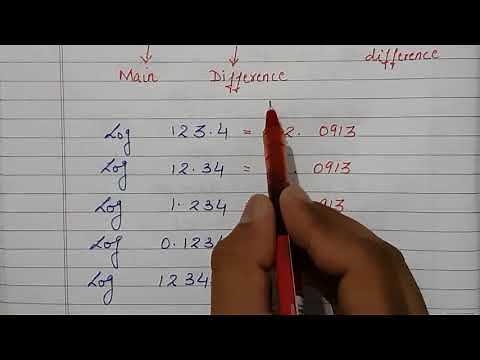 difference
Main Difference
Log 123.4 = 2. 0913
Log 12.34 = . 0913
Log 1.234 913
Log 0.1234
Log 1234